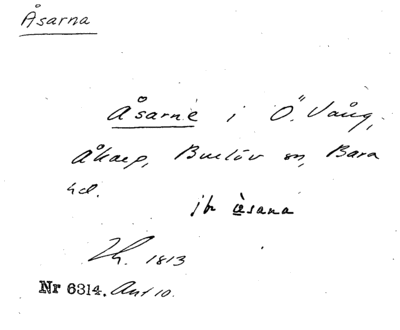 Åsarna
Åsarne i Ö. Vång,
Åkarp, Burlöv sn, Bara
hd.
jfr åsana
Zh. 1813
Nr 6314. Ant 10.